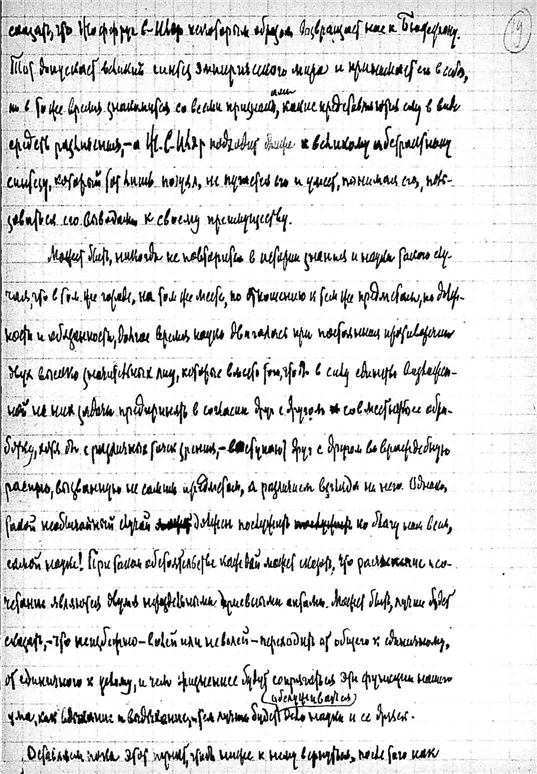 19
сказать, что Жоффруа С-Илер некоторым образом возвращает нас к Бюффону.
Тот допускает великий синтез эмпирического мира и принимает его в себя,
но в то же время знакомится со всеми признаками, какие представляются ему в виде
средств различения, – а Ж. С-Илер подходит ближе к великому абстрактному
синтезу, который тот лишь почуял, не пугается его и умеет, понимая его, поль-
зоваться его выводами к своему преимуществу.
Может быть, никогда не повторится в истории знания и науки такого слу-
чая, что в том же городе, на том же месте, по отношению к тем же предметам, по долж-
ности и обязанности, долгое время наука двигалась при постоянном противоречии
двух высоко значительных лиц, которые вместо того, чтобы в силу единства возложен-
ной на них задачи предпринять в согласии друг с другом совместную обра-
ботку, хотя бы с различных точек зрения, – вступают друг с другом во враждебную
распрю, вызванную не самим предметом, а различием взгляда на него. Однако,
такой необычайный случай должен послужить ко благу нам всем,
самой науке! При таком обстоятельстве каждый может сказать, что разъятие и со-
четание являются двумя нераздельными актами. Может быть, лучше будет
сказать, – что неизбежно – волей или неволей – переходить от общего к единичному,
от единичного к целому, и чем жизненнее будут сопрягаться эти функции нашего
ума, как вдыхание и выдыхание, тем лучше будет обслуживаться дело науки и ее друзей.
Оставляем пока этот пункт, чтобы ниже к нему вернуться, после того как